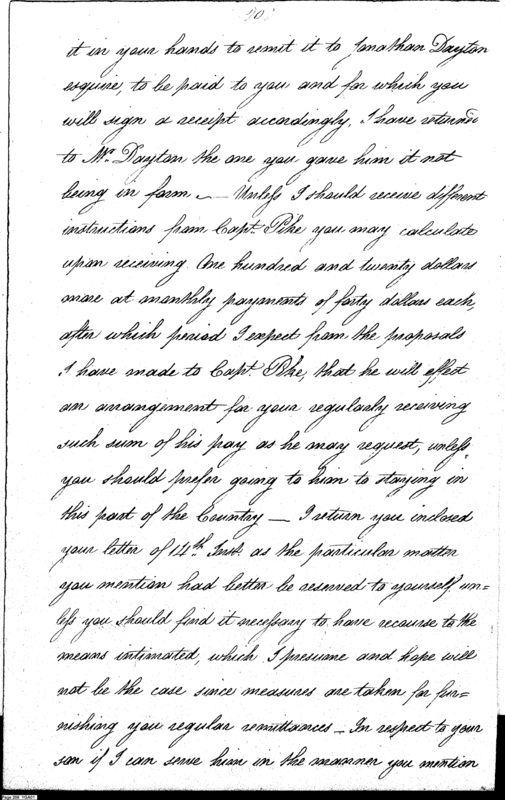 it in your hands to remit it to Jonathan Dayton
esquire, to be paid to you and for which you
will sign a receipt accordingly. I have returned
to Mr. Dayton the one you gave him it not
being in form — Unless I should receive different
instructions from Capt. Pike you may calculate
upon receiving One hundred and twenty dollars
more at monthly payments of forty dollars each,
after which period I expect from the proposals
I have made to Capt. Pike, that he will effect
an arrangement for your regularly receiving
such sum of his pay as he may request, unless
you should prefer going to him to staying in
this part of the Country — I return you inclosed
your letter of 14th Inst. as the particular matter
you mention had better be reserved to yourself un=
less you should find it necessary to have recourse to the
means intimated, which I presume and hope will
not be the case since measures are taken for fur=
nishing you regular remittances — In respect to your
son if I can serve him in the manner you mention